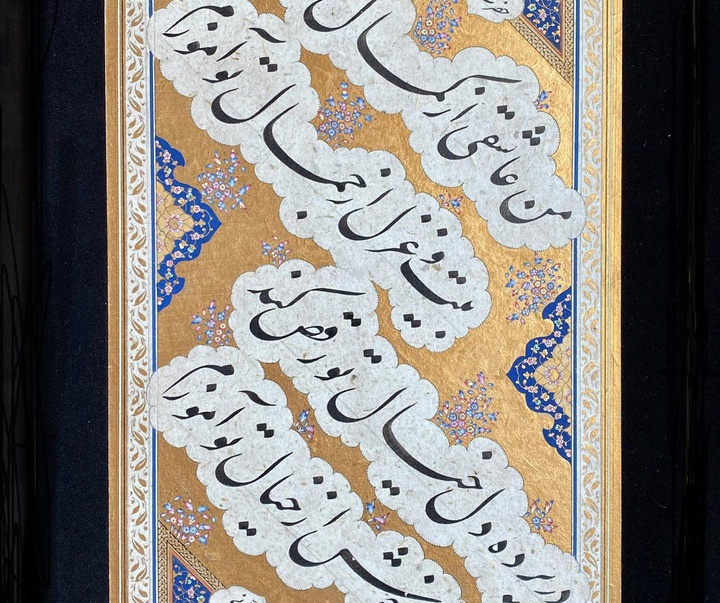 من عاشقی از کمال تو آموزم
بیت و غزل از جمال تو آموزم
در پرده دل خیال تو رقص کند
رقص از خیال تو آموزم